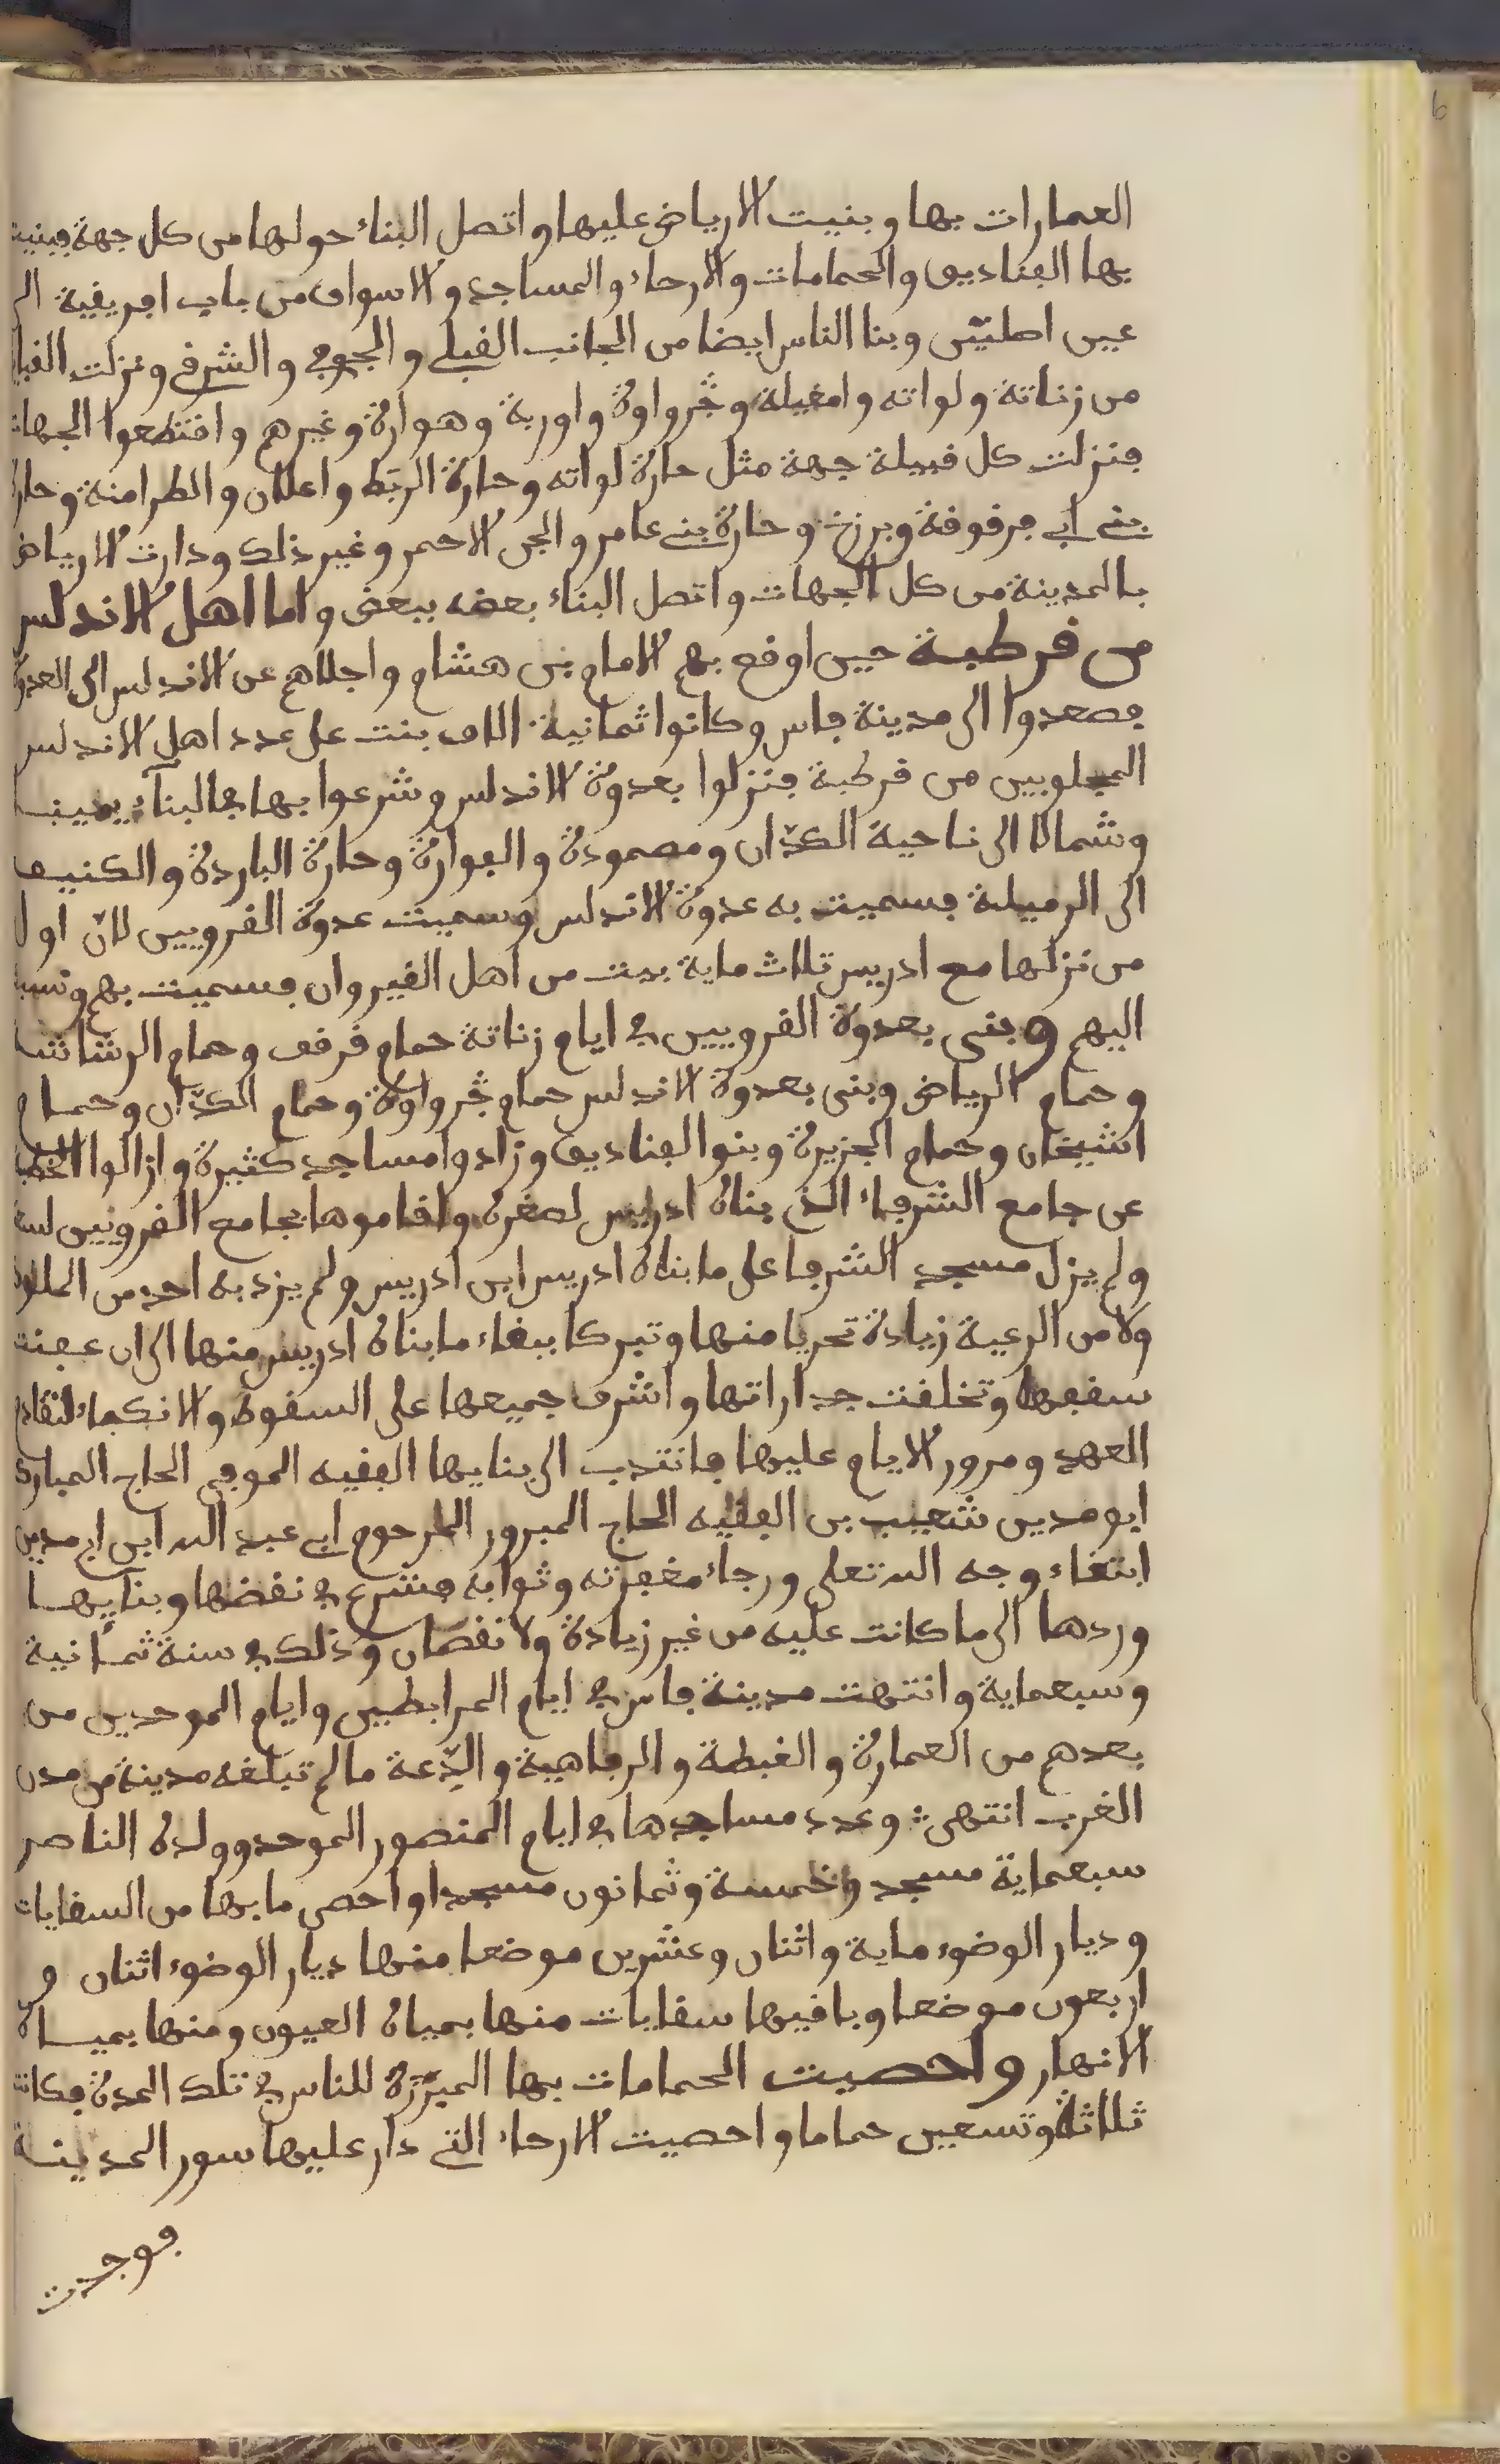 6
العمارات بها وبنيت الارياض عليها واتصل البناء حولها من كل جهة فبنيت
بها الفناديق والحمامات والارحاء والمساجد والاسواق من باب افريقية الى
عين اصليتن وبنا الناس ايضا من الجانب القبلي والجوفي والشرفي ونزلت القبايل
من زناتة ولواته وامغيلة وجرواوة واوربة وهوارة وغيرهم واقتطعوا الجهات
فنزلت كل قبيلة جهة مثل حارة لواته وحارة الربط واعلان والطرامنة وحارة
بني ابي مرقوقة وبرزخ وحارة بني عامر والجرف الاحمر وغير ذلك ودارت الارياض
بالمدينة من كل الجهات واتصل البناء بعضه ببعض واما اهل الاندلس
من قرطبة حين اوقع بهم الامام بن هشام واجلاهم عن الاندلس الى العدوة
فصعدوا الى مدينة فاس وكانوا ثمانية الاف بنت على عدد اهل الاندلس
المجلوبين من قرطبة فنزلوا بعدوة الاندلس وشرعوا بها في البناء يمينا
وشمالا الى ناحية الكدان ومصمودة والفوارة وحارة الباردة والكنيف
الى الرميلة فسميت به عدوة الاندلس وسميت عدوة القرويين لان اول
من نزلها مع ادريس ثلاث ماية بيت من اهل القيروان فسميت بهم ونسبت
اليهم وبنى بعدوة القرويين في ايام زناتة حمام قرقف وحمام الرشاشا
وحمام الرياض وبنى بعدوة الاندلس حمام جرواوة وحمام الكدان وحمام
الشيخان وحمام الجزيرة وبنو الفناديق وزادوا مساجد كثيرة وازالوا الخطبة
عن جامع الشرفاء الذي بناه ادريس لصغره واقاموها بجامع القرويين لسعته
ولم يزل مسجد الشرفا على ما بناه ادريس ابن ادريس ولم يزد به احد من الملوك
ولا من الرعية زيادة تحريا منها وتبركا ببقاء ما بناه ادريس منها الى ان عفنت
سقفها وتخلقت جداراتها واشرف جميعها على السقوط والانكفاء لتقادم
العهد ومرور الايام عليها فانتدب الى بنايها الفقيه الموفق الحاج المبارك
ابو مدين شعيب بن الفقيه الحاج المبرور المرحوم ابي عبد الله ابن ابي مدين
ابتغاء وجه الله تعلى ورجاء مغفرته وثوابه فشرع في نقضها وبنايها
وردها الى ما كانت عليه من غير زيادة ولا نقصان وذلك في سنة ثمانية
وسبعماية وانتهت مدينة فاس في ايام المرابطين وايام الموحدين من
بعدهم من العمارة والغبطة والرفاهية والدعة ما لم تبلغه مدينة من مدن
الغرب انتهى وعدد مساجدها في ايام المنصور الموحد وولده الناصر
سبعماية مسجد وخمسة وثمانون مسجدا واحصى ما بها من السقايات
وديار الوضوء ماية واثنان وعشرين موضعا منها ديار الوضوء اثنان و
اربعون موضعا وباقيها سقايات منها بمياه العيون ومنها بمياه
الانهار واحصيت الحمامات بها المبرزة للناس في تلك المدة فكانت
ثلاثة وتسعين حماما واحصيت الارحاء التي دار عليها سور المدينة
فوجدت